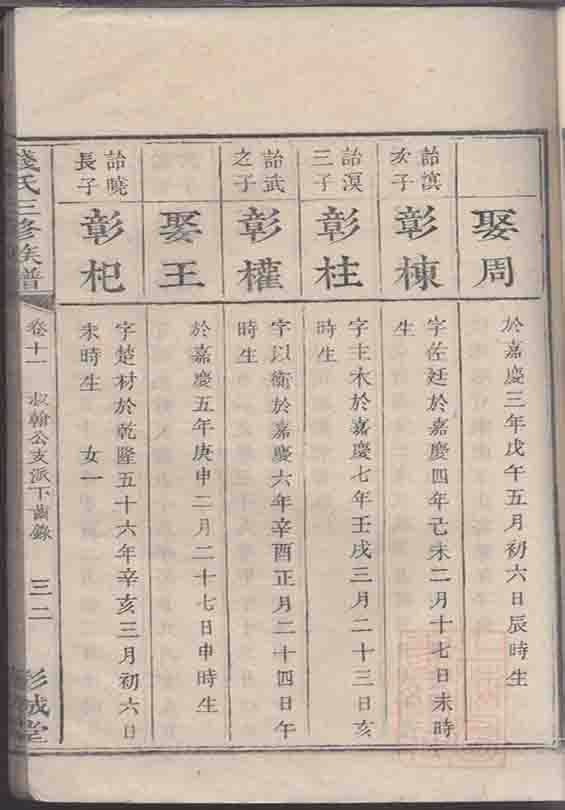 娶周
於嘉慶三年戊午五月初六日辰時生
詒淇
次子
彰棟
字佐廷於嘉慶四年己未二月十七日未時
生
詒溟
三子
彰柱
字主木於嘉慶七年壬戌三月二十三日亥
時生
詒武
之子
彰權
字以衡於嘉慶六年辛酉正月二十四日午
時生
娶王
於嘉慶五年庚申二月二十七日申時生
詒曉
長子
彰杞
字楚材於乾隆五十六年辛亥三月初六日
未時生 女一
錢氏三修族譜
卷十一 叔翰公支派下齒錄 三二
彭城堂